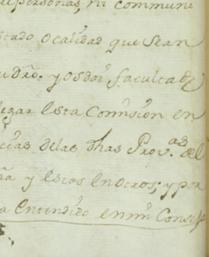 depersonas, ni commune
stado o calidad que sean
udro. y os doi facultad
legar esta Comission en
cias delas dhas Prov.as del
ña y estos en otros; y por
a entendido en mi Conse